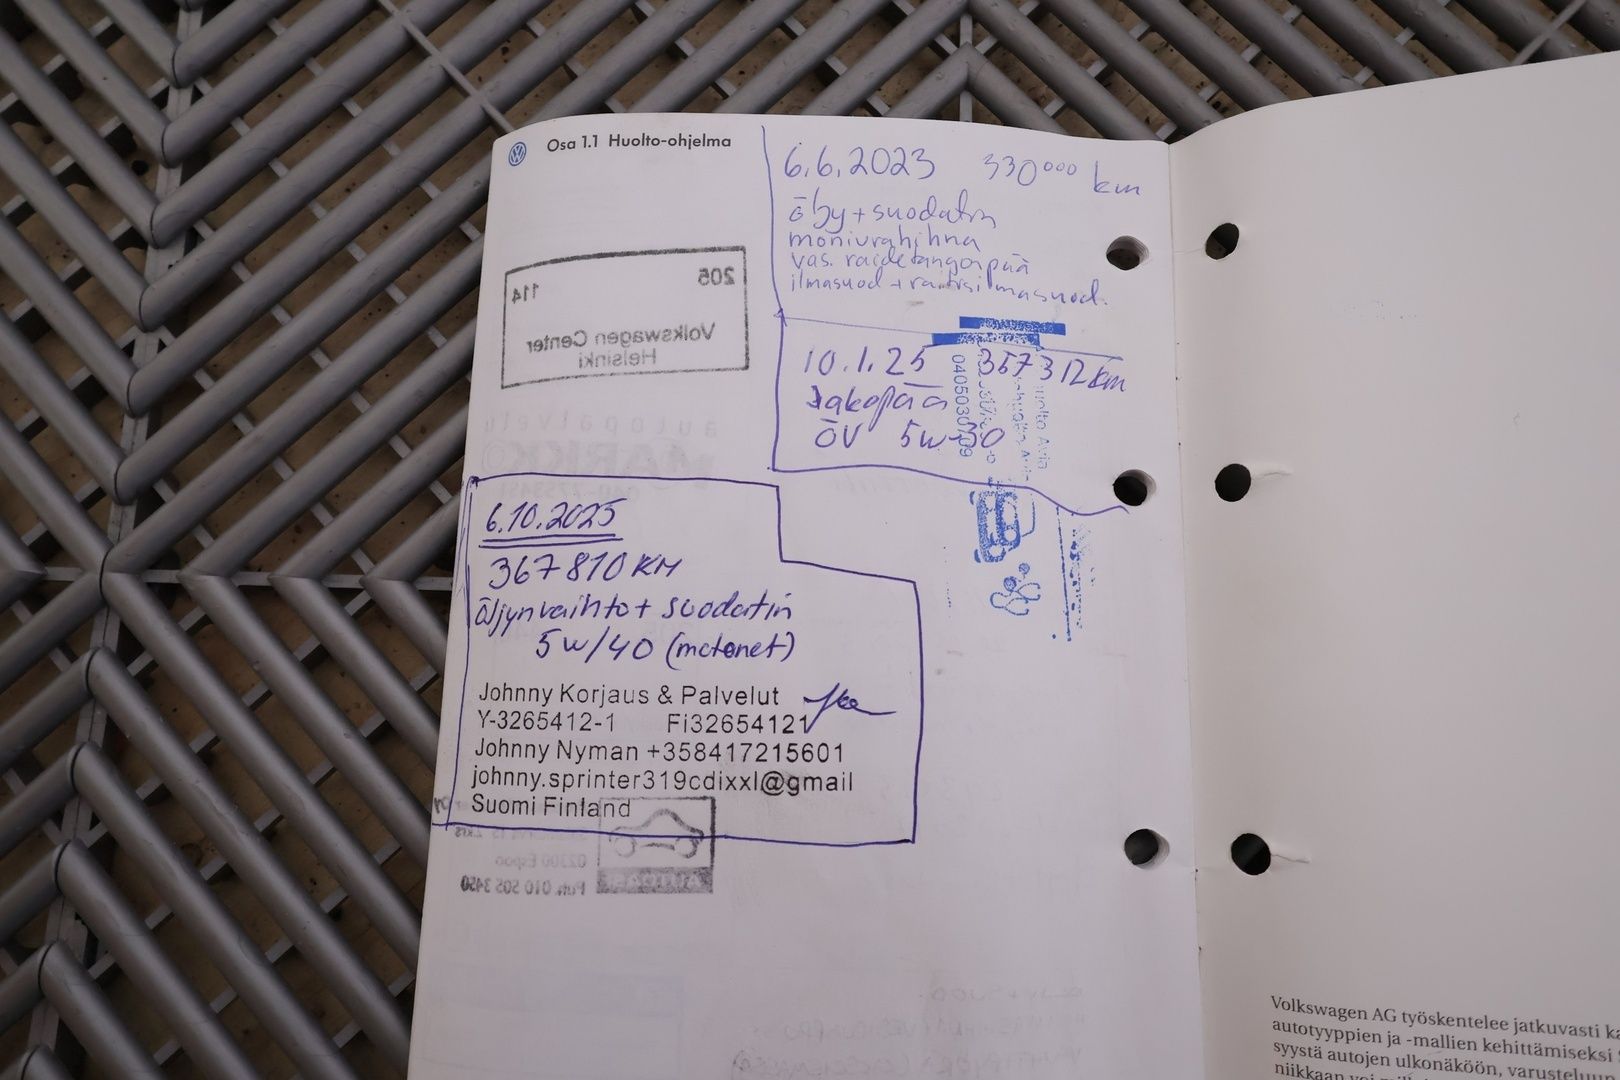 Osa 1.1 Huolto-ohjelma
6.6.2023 330000 km
öby + suodatin
moniurahihna
vas. raidetangonpää
ilmasuod + raitisilmasuod.
205
114
Volkswagen Center
Helsinki
10.1.25 357312 km
Jakopää
ÖV 5w-30
0405030709
autopalvelu
MARKKO
6.10.2025
367810 KM
öljynvaihto + suodatin
5w/40 (motonet)
Johnny Korjaus & Palvelut
Y-3265412-1 Fi32654121
Johnny Nyman +358417215601
johnny.sprinter319cdixxl@gmail
Suomi Finland
02300 Espoo
Puh. 010 505 3450
Volkswagen AG työskentelee jatkuvasti
autotyyppien ja -mallien kehittämiseksi
syystä autojen ulkonäköön, varusteluun